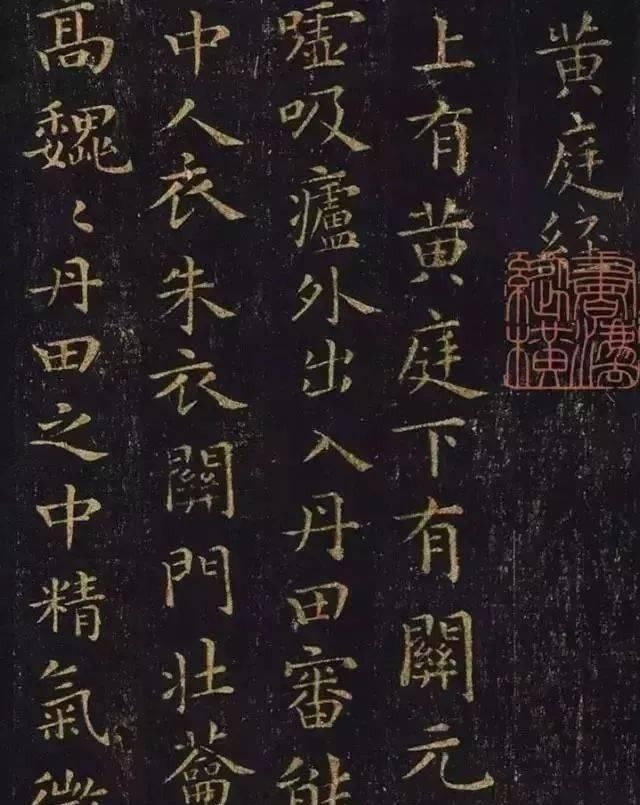 黄庭經
上有黄庭下有關元
嘘吸廬外出入丹田審能
中人衣朱衣關門壯蘥
高巍〻丹田之中精氣微
書灋
縱橫